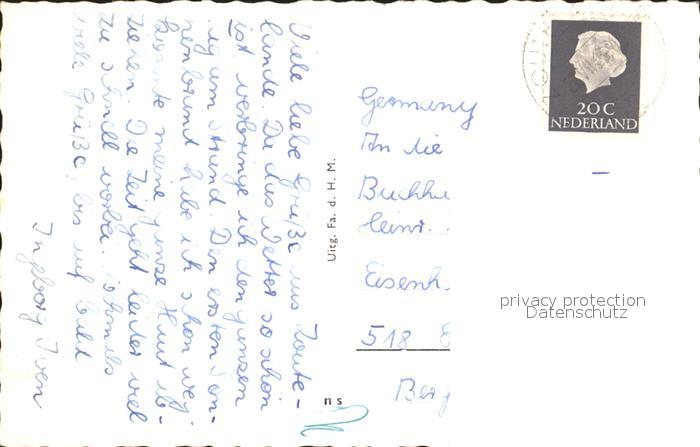 Viele liebe Grüße aus Zoute-
lande. Da das Wetter so schön
ist verbringe ich den ganzen
Tag am Strand. Den ersten Son-
nenbrand habe ich schon weg.
konnte meine ganze Haut ab-
ziehen. Die Zeit geht leider viel
zu schnell vorbei.
viele Grüße, bis auf bald
Ingeborg Iven
Uitg. Fa. d. H. M.
n s
20 C
NEDERLAND
Germany
An die
Buchh
Heinr.
Eisenh.
518
Berg
privacy protection
Datenschutz